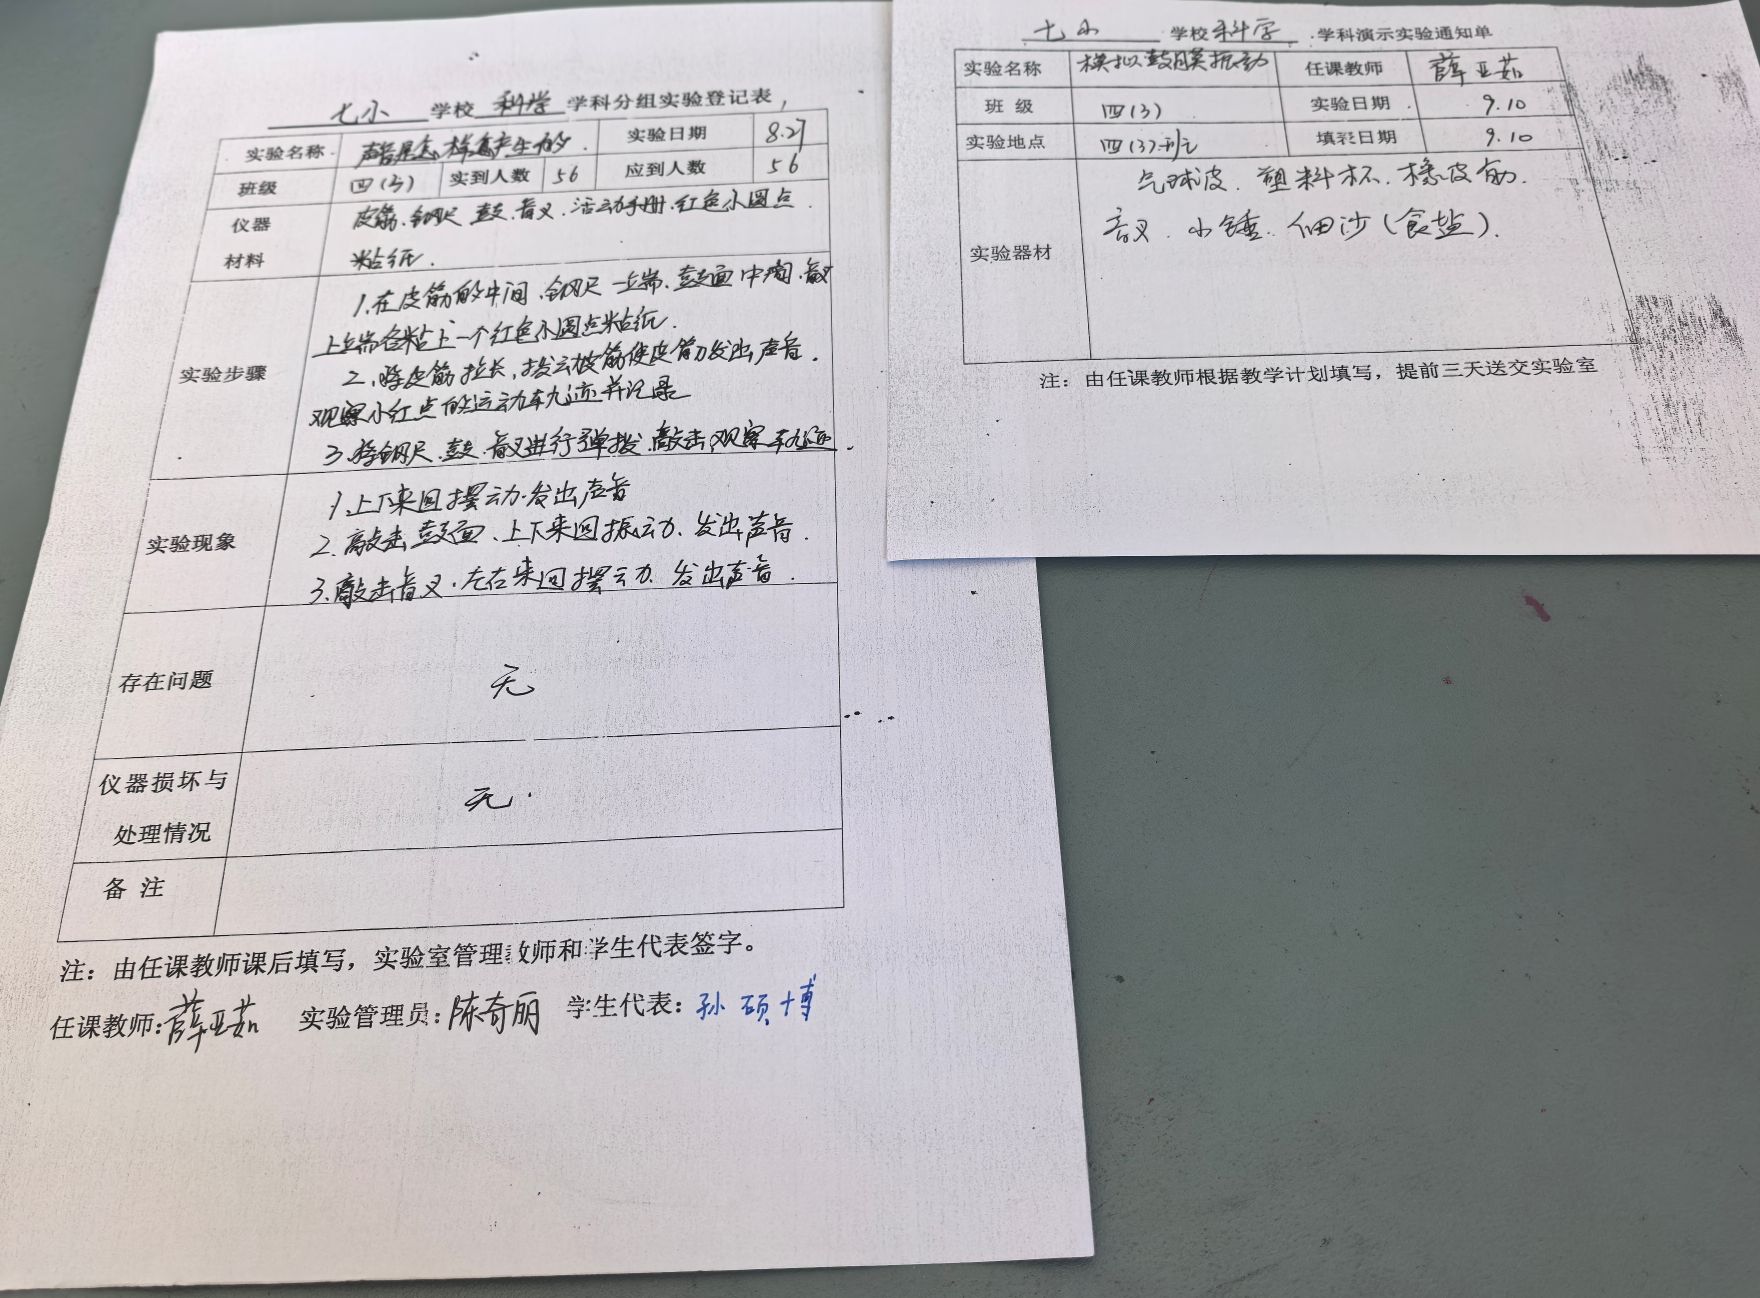 七小 学校 科学 学科分组实验登记表
实验名称 声音是怎样产生的 实验日期 8.27
班级 四(3) 实到人数 56 应到人数 56
仪器 皮筋、钢尺、鼓、音叉、活动手册、红色小圆点
材料 粘纸.
实验步骤
1.在皮筋的中间、钢尺一端、鼓面中间、音叉
上端各粘上一个红色小圆点粘纸.
2.将皮筋拉长,拨动皮筋使皮筋发出声音.
观察小红点的运动轨迹并记录
3.将钢尺、鼓、音叉进行弹拨、敲击,观察轨迹.
实验现象
1.上下来回摆动.发出声音
2.敲击鼓面、上下来回振动、发出声音.
3.敲击音叉.左右来回摆动.发出声音.
存在问题 无
仪器损坏与
处理情况 无.
备 注
注：由任课教师课后填写，实验室管理教师和学生代表签字。
任课教师:薛亚茹 实验管理员:陈奇丽 学生代表:孙硕博
七小 学校 科学 学科演示实验通知单
实验名称 模拟鼓膜振动 任课教师 薛亚茹
班 级 四(3) 实验日期 9.10
实验地点 四(3)班 填表日期 9.10
实验器材
气球皮、塑料杯、橡皮筋.
音叉、小锤、细沙(食盐).
注：由任课教师根据教学计划填写，提前三天送交实验室